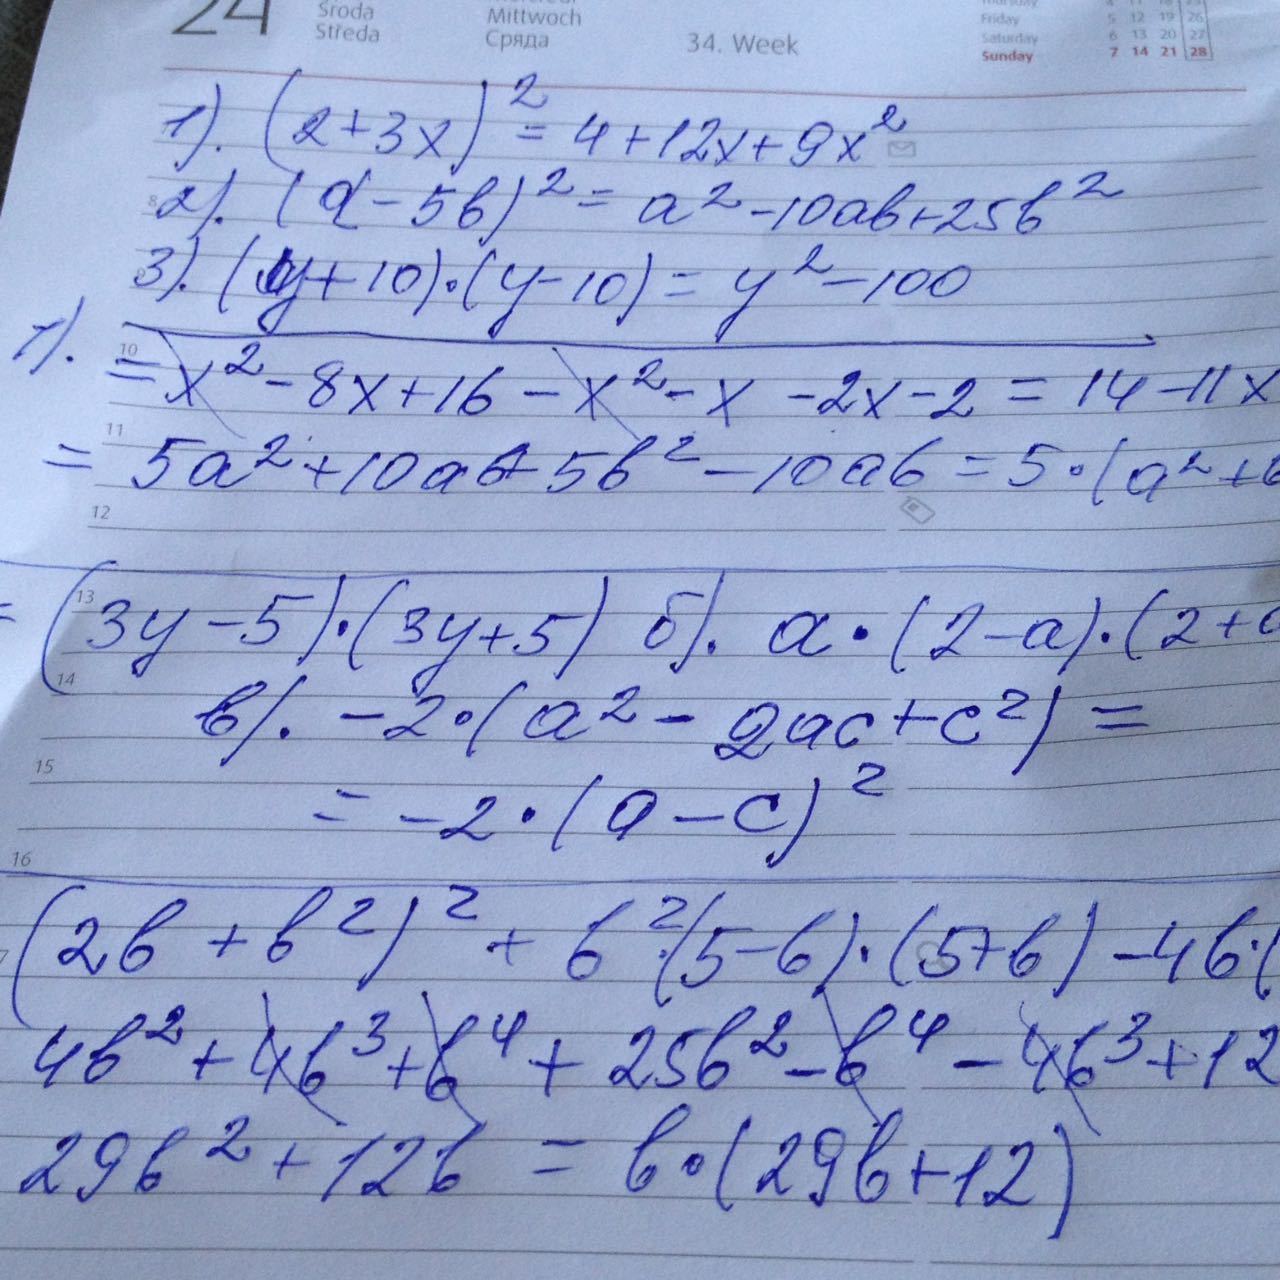 24
Środa
Středa
Mittwoch
Сряда
34. Week
Friday 5 12 19 26
Saturday 6 13 20 27
Sunday 7 14 21 28
1). (2+3x)² = 4+12x+9x²
2). (a-5b)² = a²-10ab+25b²
3). (y+10)·(y-10) = y²-100
1).
10
= x²-8x+16-x²-x-2x-2 = 14-11x
11
= 5a²+10ab+5b²-10ab = 5·(a²+
12
13
= (3y-5)·(3y+5) б). a·(2-a)·(2+
14
в). -2·(a²-2ac+c²) =
15
= -2·(a-c)²
16
(2b+b²)²+b²·(5-b)·(5+b)-4b·(
4b²+4b³+b⁴+25b²-b⁴-4b³+12
29b²+12b = b·(29b+12)